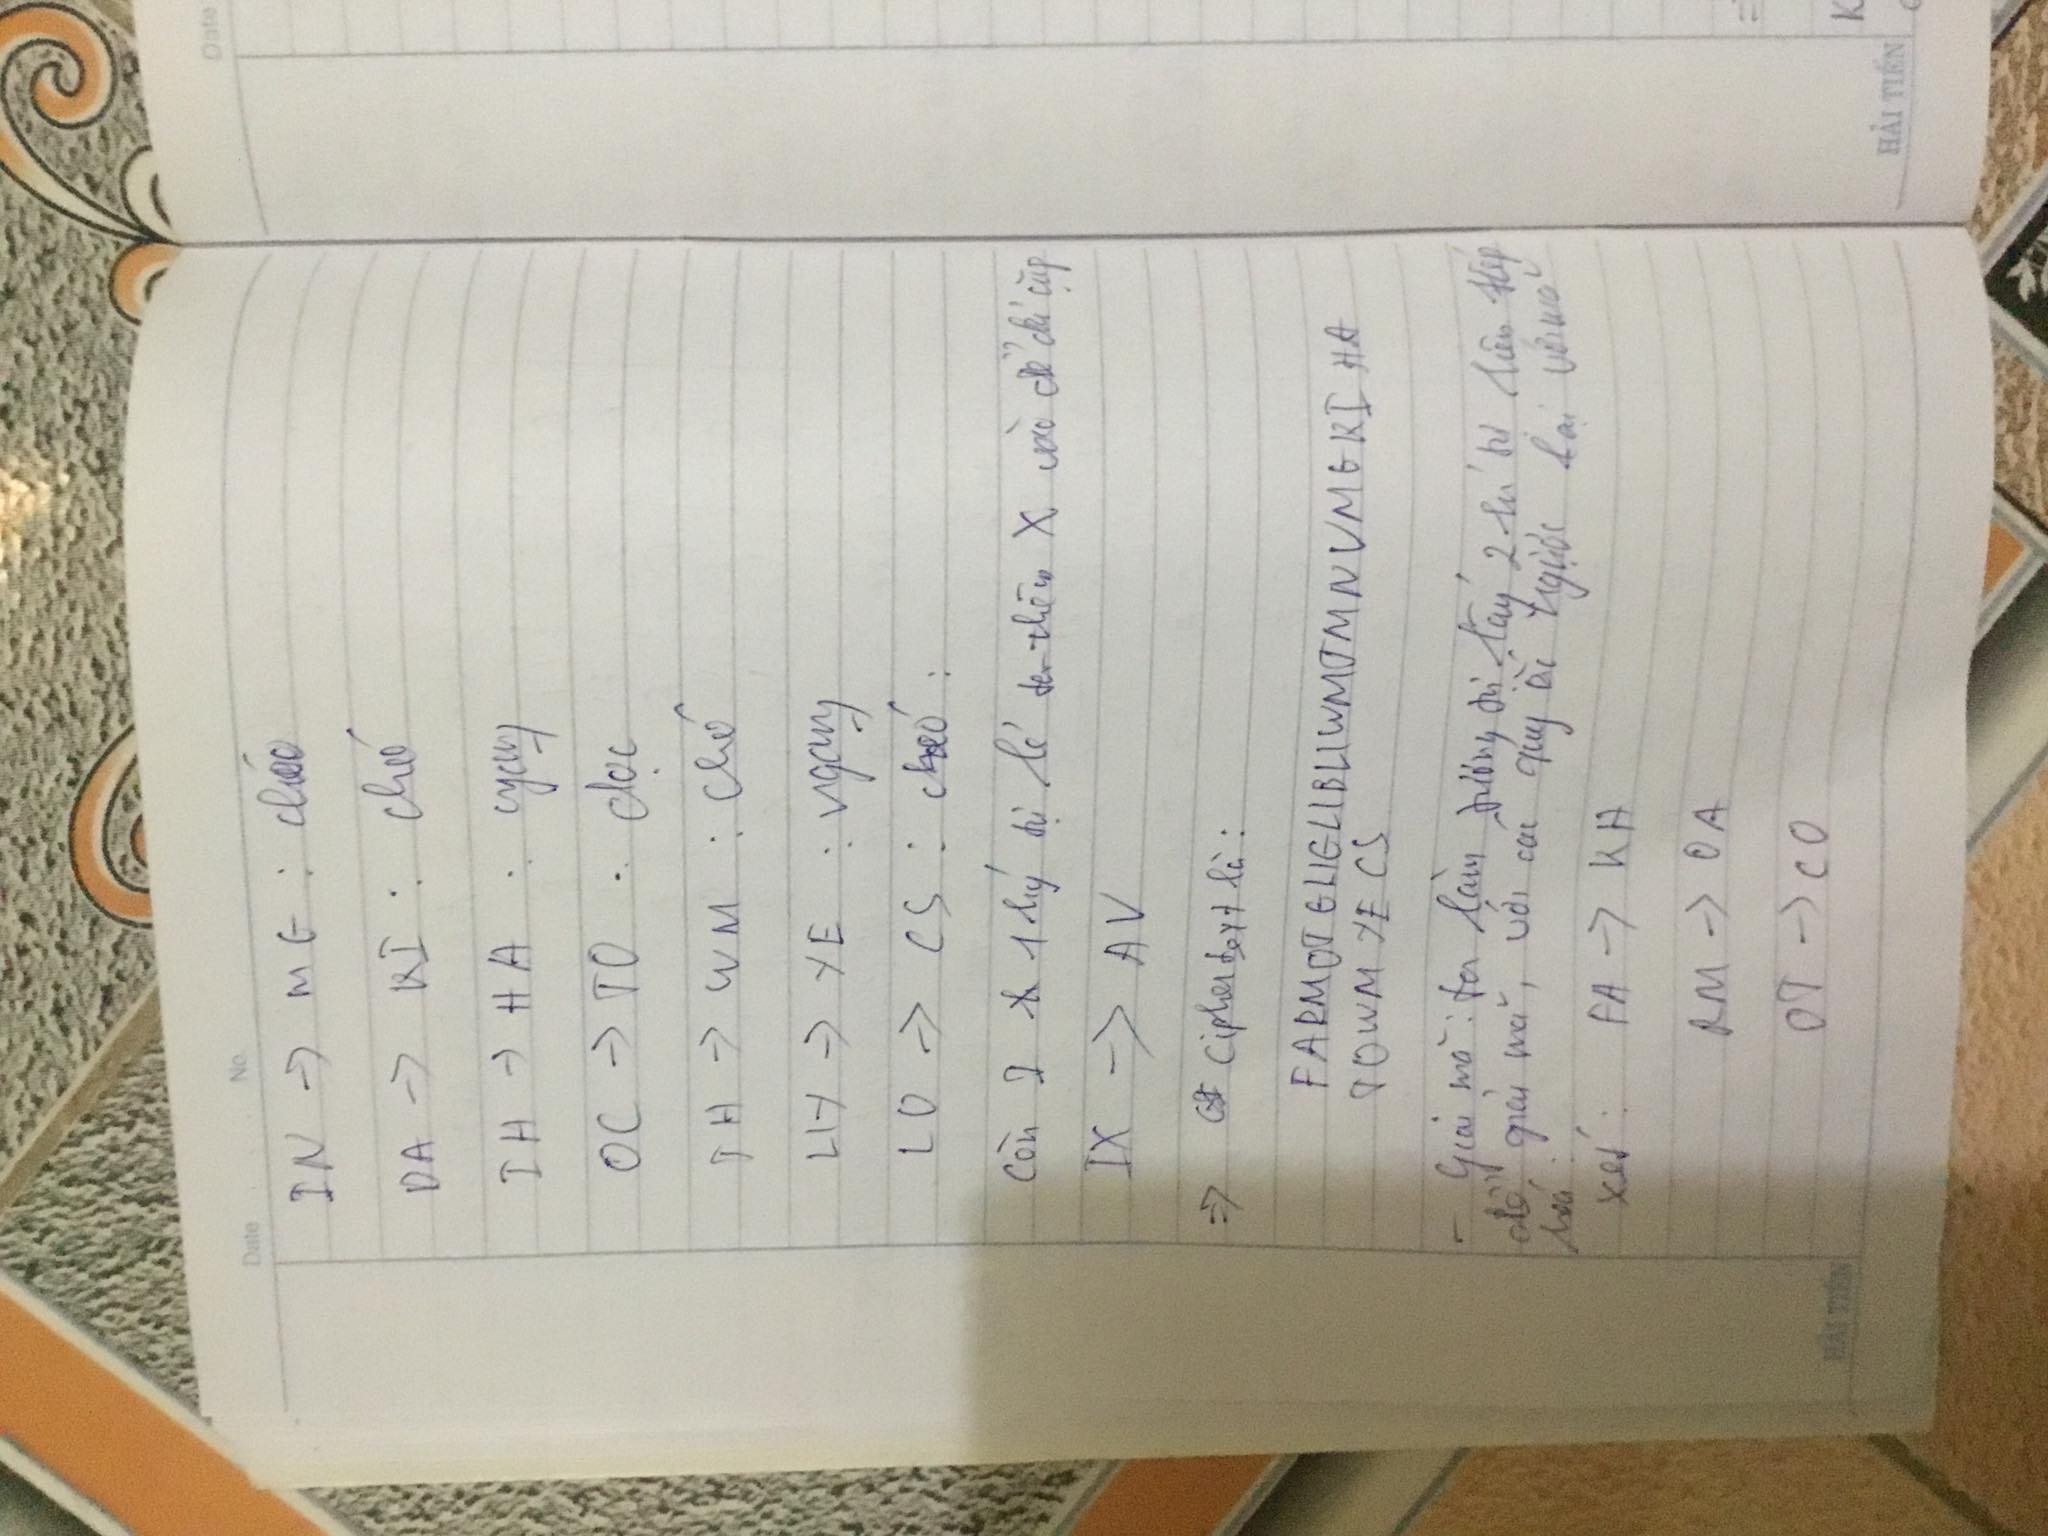 Date No.
Date
IN -> ME : chéo
DA -> KI : chéo
IH -> HA : ngang
OC -> TO : dọc
TH -> WM : chéo
UY -> YE : ngang
LO -> CS : chéo :
Còn I 1 ký tự lẻ ta thêm X vào để đủ cặp
IX -> AV
=> Ciphertext là :
FARMOTEUEUBUWMTMNVMEKI HA
TOWM YE CS
- Giải mã : ta làm tương tự lấy 2 kí tự liên tiếp
để giải mã, với các quy tắc ngược lại với mã
hoá :
xét : FA -> KH
RM -> OA
OT -> CO
HẢI TIẾN
K
HẢI TIẾN